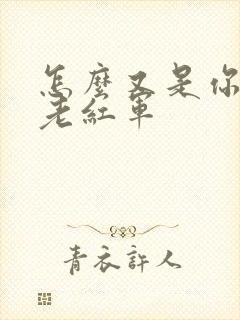 怎麼又是你
老紅軍
青衣許人